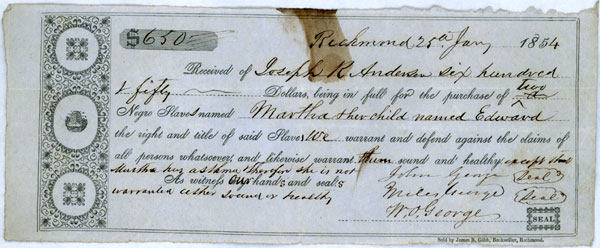 $650 Richmond 25th Jany 1854
Received of Joseph R. Anderson six hundred
& fifty Dollars, being in full for the purchase of two
Negro Slaves named Martha & her child named Edward
the right and title of said Slaves we warrant and defend against the claims of
all persons whatsoever, and likewise warrant them sound and healthy except that
Martha has asthma therefore she is not
As witness our hands and seals
warranted either sound or healthy
John George Seal
Miles George Seal
W. O. George SEAL
Sold by James E. Gibb, Bookseller, Richmond.